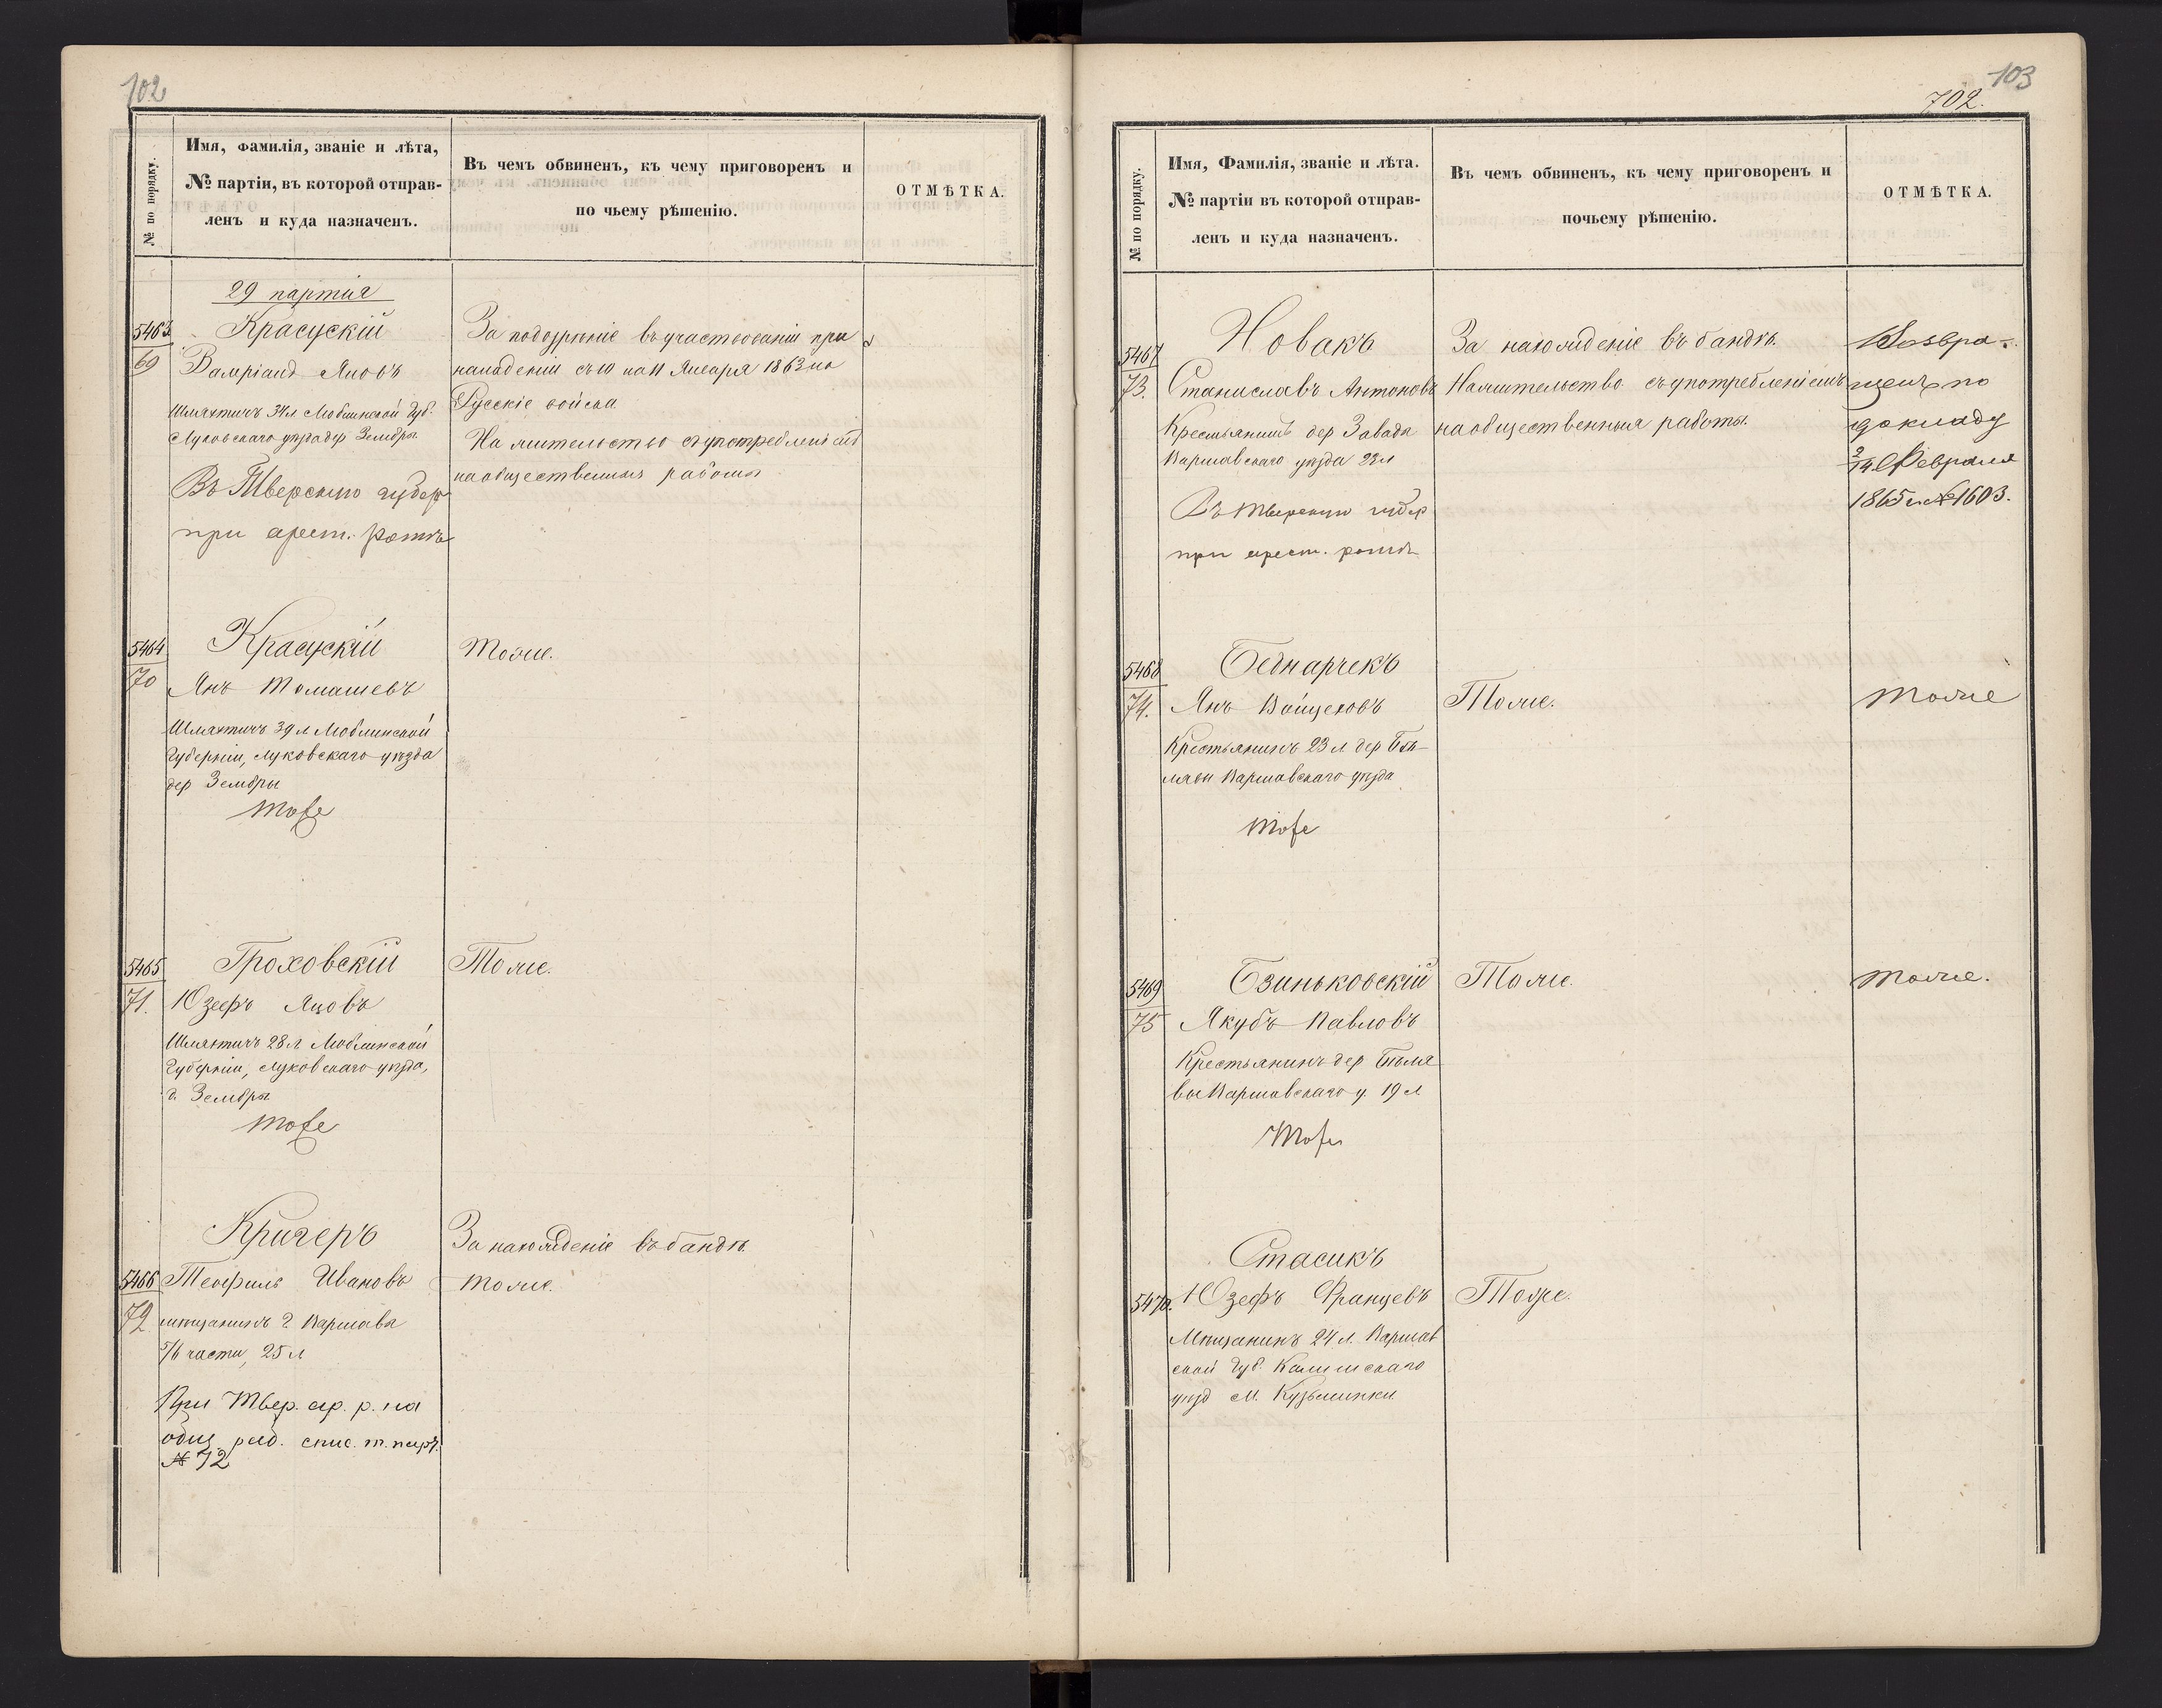 102
№ по порядку.
Имя, фамилія, званіе и лѣта,
№ партіи, въ которой отправ-
ленъ и куда назначенъ.
Въ чемъ обвиненъ, къ чему приговоренъ и
по чьему рѣшенію.
ОТМѢТКА.
29 партія
5463
69
Красускій
Яновъ
Шляхтичъ 34 л Люблинской Губ.
Луковскаго уѣзда дер Зембры
Въ Тверскую губер
при арест. ротѣ
За подозрѣніе въ участвованіи при
нападеніи съ 10 на 11 Января 1863 на
Русскіе войска
На жительство съ употребленіемъ
на общественныя работы
5464
70
Красускій
Янъ Томашевъ
Шляхтичъ 39 л Люблинской
Губерніи, Луковскаго уѣзда
дер Зембры
тоже
Тоже.
5465
71.
Гроховскій
Юзефъ Яновъ
Шляхтичъ 28 л Люблинской
Губерніи, Луковскаго уѣзда,
д. Зембры
тоже
Тоже.
5466
72
Кригеръ
Теофиль Ивановъ
мѣщанинъ г Варшавы
части, 25 л
При Твер. ар. р. на
общ. раб. спис. т. парт.
№ 72
За нахожденіе въ бандѣ
Тоже.
103
702.
№ по порядку.
Имя, Фамилія, званіе и лѣта.
№ партіи въ которой отправ-
ленъ и куда назначенъ.
Въ чемъ обвиненъ, къ чему приговоренъ и
почьему рѣшенію.
ОТМѢТКА.
5467
73.
Новакъ
Станиславъ Антоновъ
Крестьянинъ дер Завада
Варшавскаго уѣзда 23 л
Въ Тверскую губер
при арест. ротѣ
За нахожденіе въ бандѣ.
На жительство съ употребленіемъ
на общественныя работы.
Возвра-
щенъ по
докладу
2/14 Февраля
1865 г. № 1603.
5468
74.
Беднарчекъ
Янъ Войцеховъ
Крестьянинъ 23 л дер Бѣ-
лявы Варшавскаго уѣзда
тоже
Тоже.
тоже
5469
75
Бзиньковскій
Якубъ Павловъ
Крестьянинъ дер Бѣля
вы Варшавскаго у. 19 л
Тоже
Тоже.
тоже.
5470.
Стасикъ
Юзефъ Францевъ
Мѣщанинъ 24 л. Варшав
ской Губ. Калишскаго
уѣзд м. Кузьминки
Тоже.